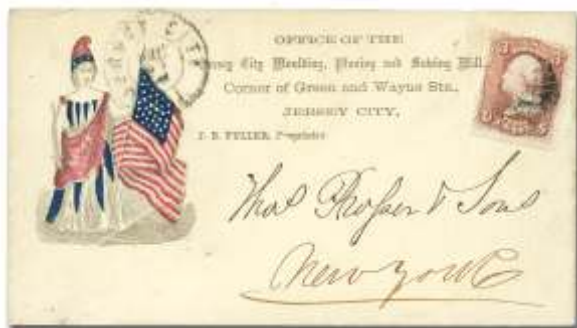 OFFICE OF THE
Jersey City Moulding, Planing and Sawing Mill,
Corner of Green and Wayne Sts.,
JERSEY CITY,
FULLER, Proprietor
JERSEY CITY
Thos Prosser & Sons
New York